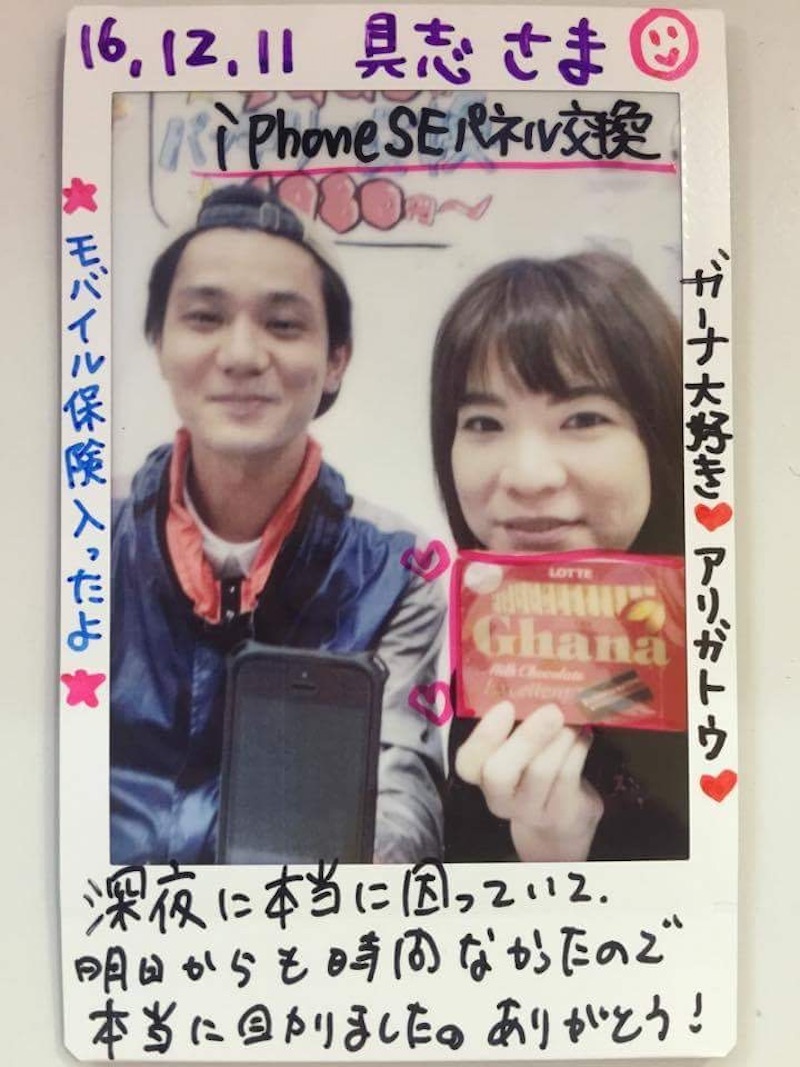 16.12.11 具志 さま
iPhoneSEパネル交換
モバイル保険入ったよ
ガーナ大好き♥アリガトウ♥
LOTTE
Ghana
Milk Chocolate
Excellent
深夜に本当に困っていて、
明日からも時間なかったので
本当に助かりました。ありがとう!